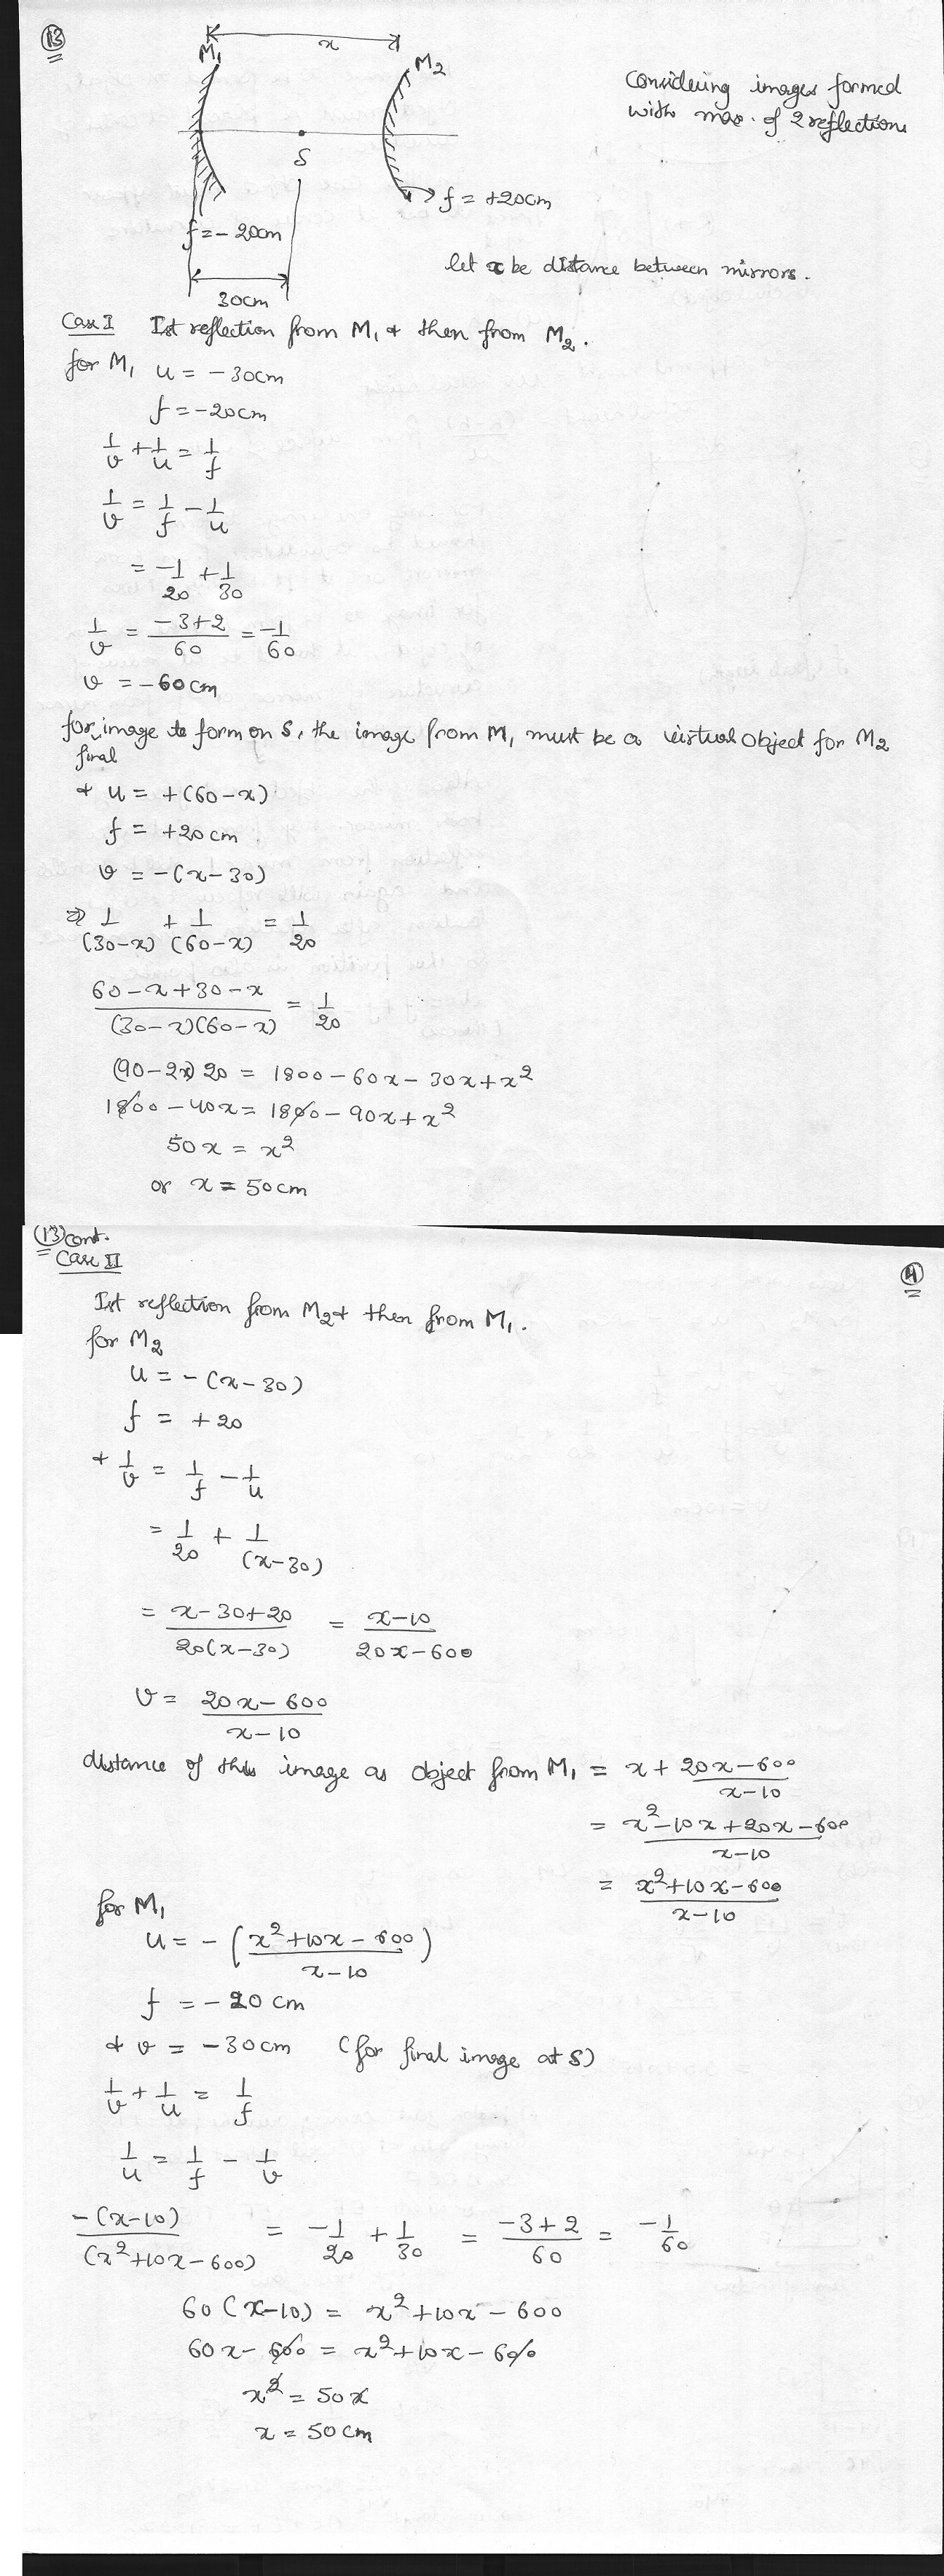 (13)
x
M1
M2
Considering images formed
with max. of 2 reflections
S
f = +20cm
f = -20cm
let x be distance between mirrors.
30cm
Case I Ist reflection from M1 & then from M2.
for M1 u = -30cm
f = -20cm
1/v + 1/u = 1/f
1/v = 1/f - 1/u
= -1/20 + 1/30
1/v = (-3+2)/60 = -1/60
v = -60cm
for final image to form on S, the image from M1 must be a virtual object for M2
& u = +(60-x)
f = +20cm
v = -(x-30)
⇒ 1/(30-x) + 1/(60-x) = 1/20
(60-x+30-x)/((30-x)(60-x)) = 1/20
(90-2x)20 = 1800-60x-30x+x²
1800-40x = 1800-90x+x²
50x = x²
or x = 50cm
(13) cont.
Case II
(4)
Ist reflection from M2 & then from M1.
for M2
u = -(x-30)
f = +20
& 1/v = 1/f - 1/u
= 1/20 + 1/(x-30)
= (x-30+20)/(20(x-30)) = (x-10)/(20x-600)
v = (20x-600)/(x-10)
distance of this image as object from M1 = x + (20x-600)/(x-10)
= (x²-10x+20x-600)/(x-10)
= (x²+10x-600)/(x-10)
for M1
u = -((x²+10x-600)/(x-10))
f = -20 cm
& v = -30cm (for final image at S)
1/v + 1/u = 1/f
1/u = 1/f - 1/v
-(x-10)/(x²+10x-600) = -1/20 + 1/30 = (-3+2)/60 = -1/60
60(x-10) = x²+10x-600
60x-600 = x²+10x-600
x² = 50x
x = 50cm